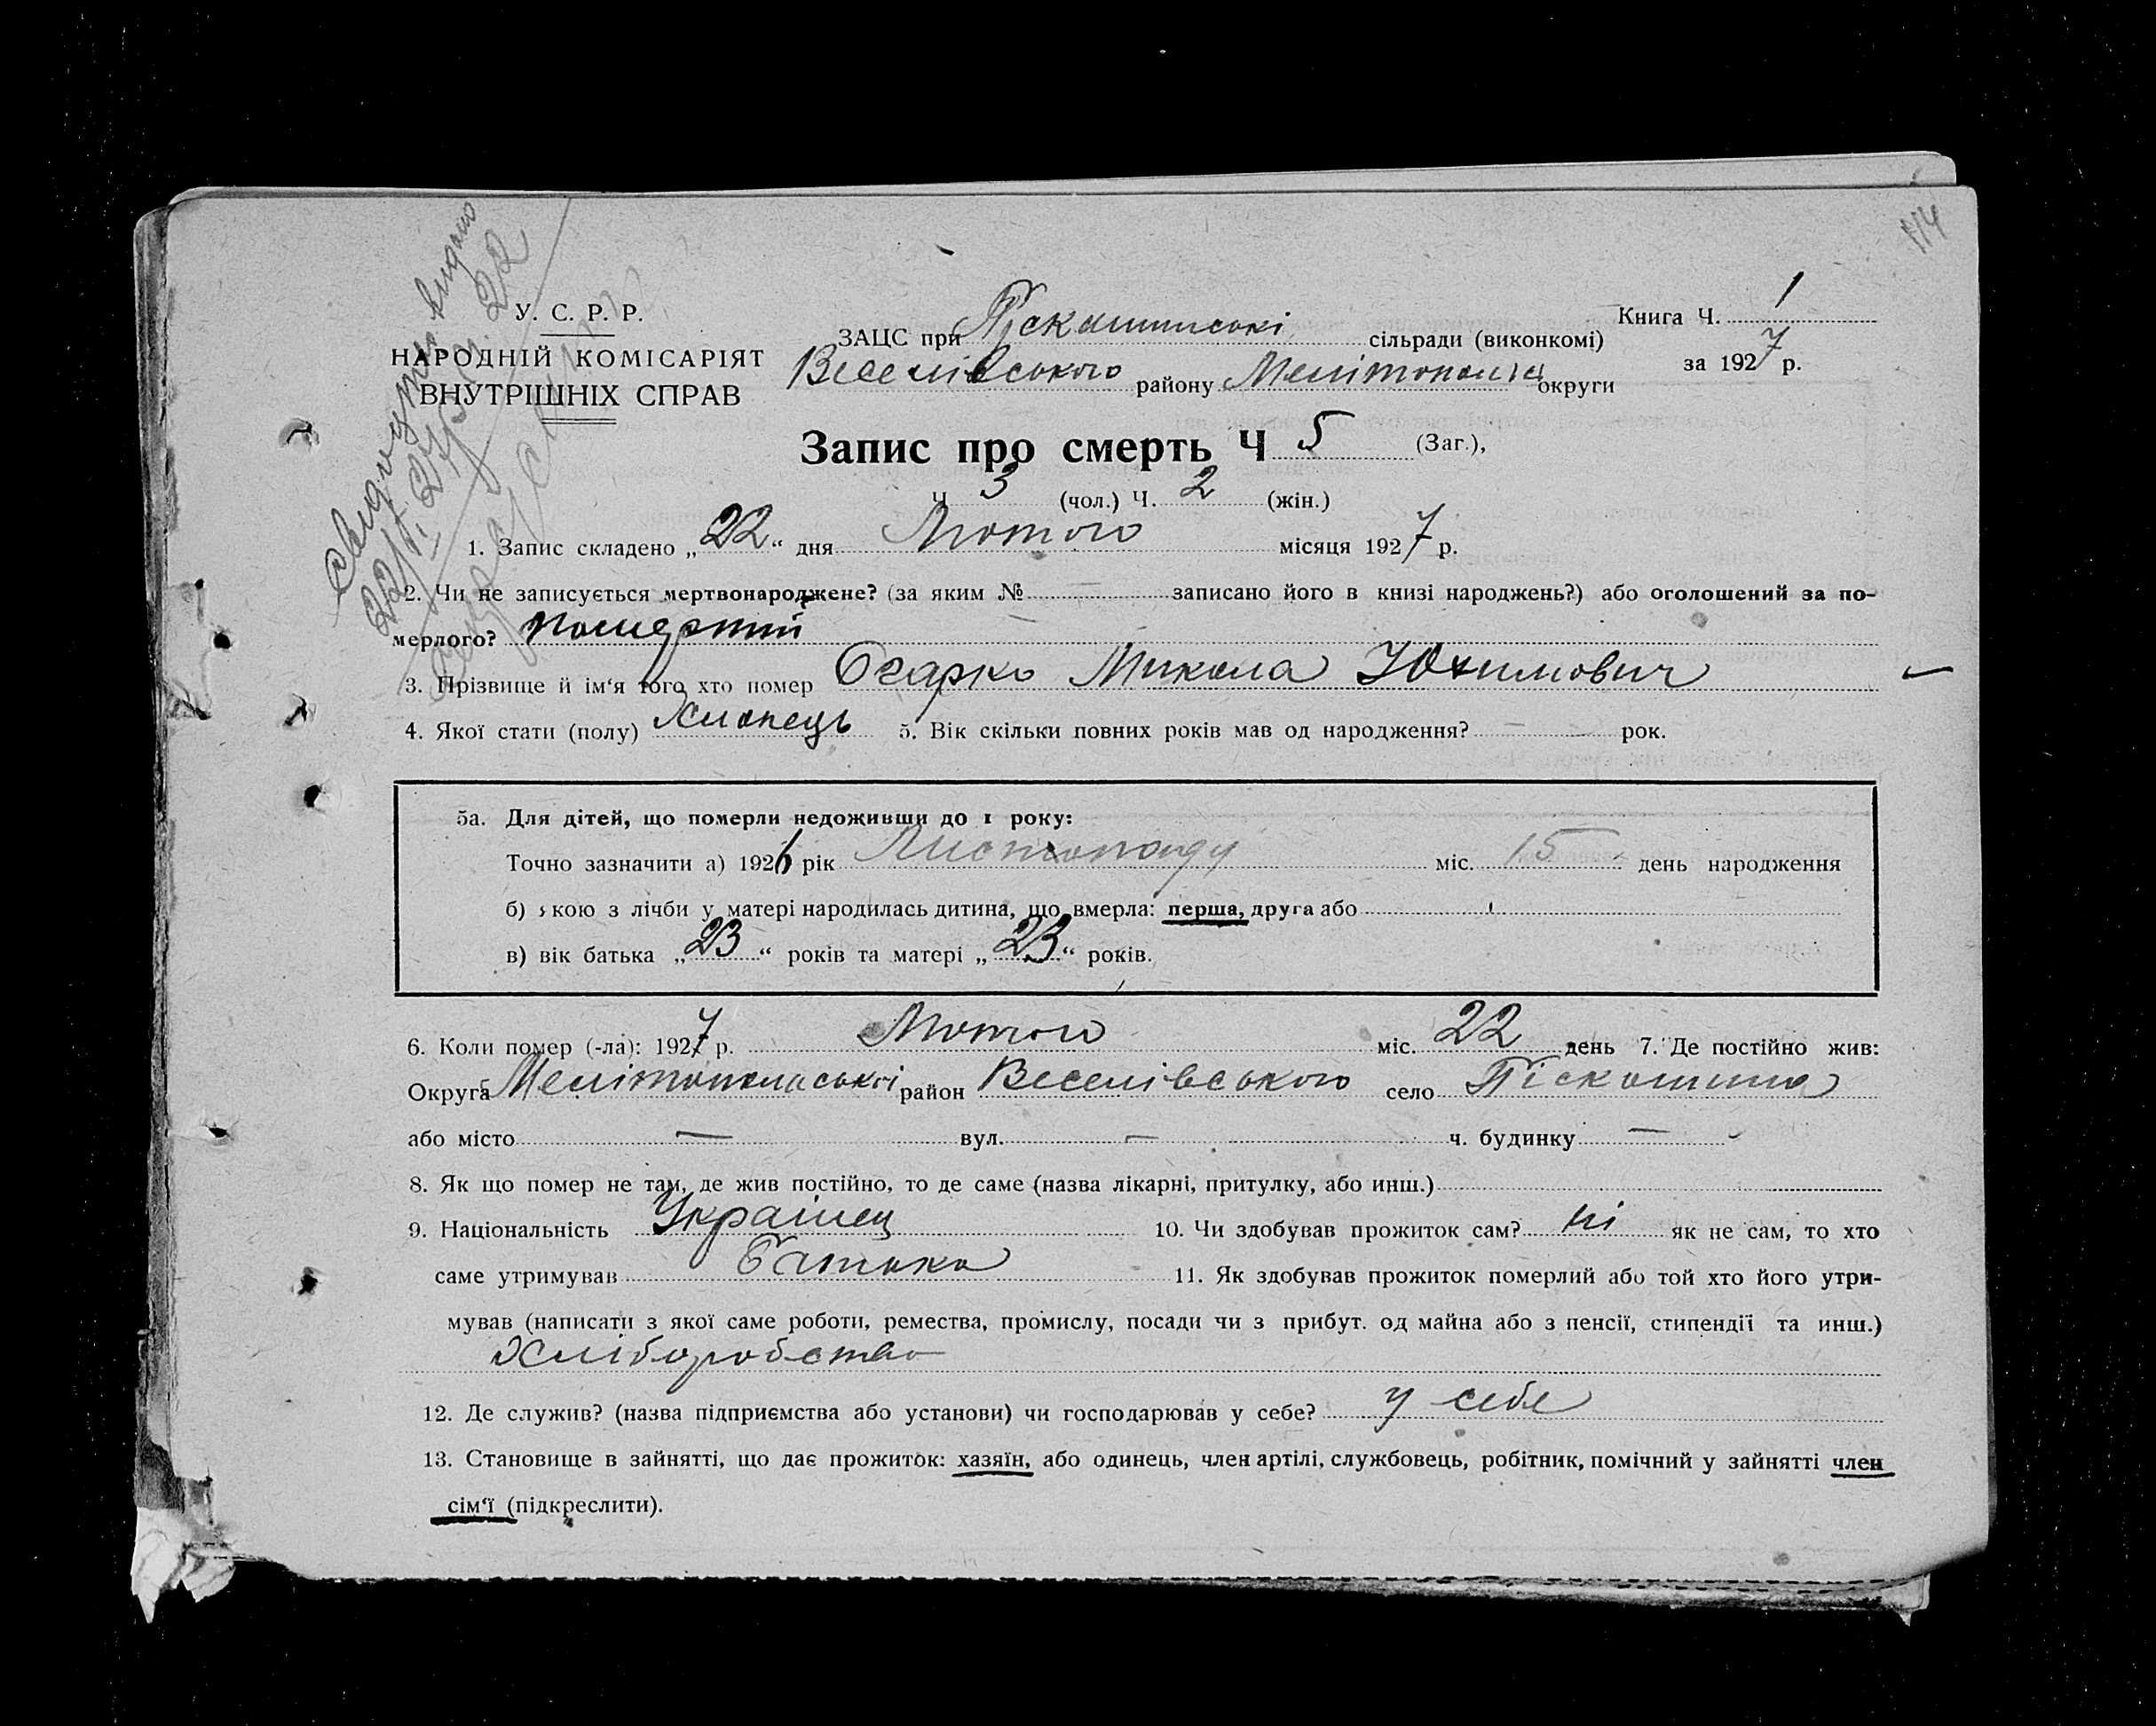 У. С. Р. Р.
НАРОДНІЙ КОМІСАРІЯТ
ВНУТРІШНІХ СПРАВ
ЗАЦС при Піскошинські сільради (виконкомі)
Веселівського району Мелітопольщ округи
Книга Ч. 1
за 1927 р.
Запис про смерть Ч 5 (Заг.),
Ч 3 (чол.) Ч. 2 (жін.)
1. Запис складено „22“ дня Лютого місяця 1927 р.
2. Чи не записується мертвонароджене? (за яким № — записано його в книзі народжень?) або оголошений за по-
мерлого? померший
3. Прізвище й ім‘я того хто помер Огарко Микола Юхимович
4. Якої стати (полу) Хлопець 5. Вік скільки повних років мав од народження? — рок.
5а. Для дітей, що померли недоживши до 1 року:
Точно зазначити а) 1926 рік Листопаду міс. 15 день народження
б) якою з лічби у матері народилась дитина, що вмерла: перша, друга або
в) вік батька „23“ років та матері „23“ років.
6. Коли помер (-ла): 1927 р. Лютого міс. 22 день 7. Де постійно жив:
Округа Мелітопольські район Веселівського село Піскошино
або місто — вул. — ч. будинку —
8. Як що помер не там, де жив постійно, то де саме (назва лікарні, притулку, або инш.)
9. Національність Українец 10. Чи здобував прожиток сам? ні як не сам, то хто
саме утримував Батько 11. Як здобував прожиток померлий або той хто його утри-
мував (написати з якої саме роботи, ремества, промислу, посади чи з прибут. од майна або з пенсії, стипендії та инш.)
Хліборобство
12. Де служив? (назва підприємства або установи) чи господарював у себе? у себе
13. Становище в зайнятті, що дає прожиток: хазяїн, або одинець, член артілі, службовець, робітник, помічний у зайнятті член
сім‘ї (підкреслити).